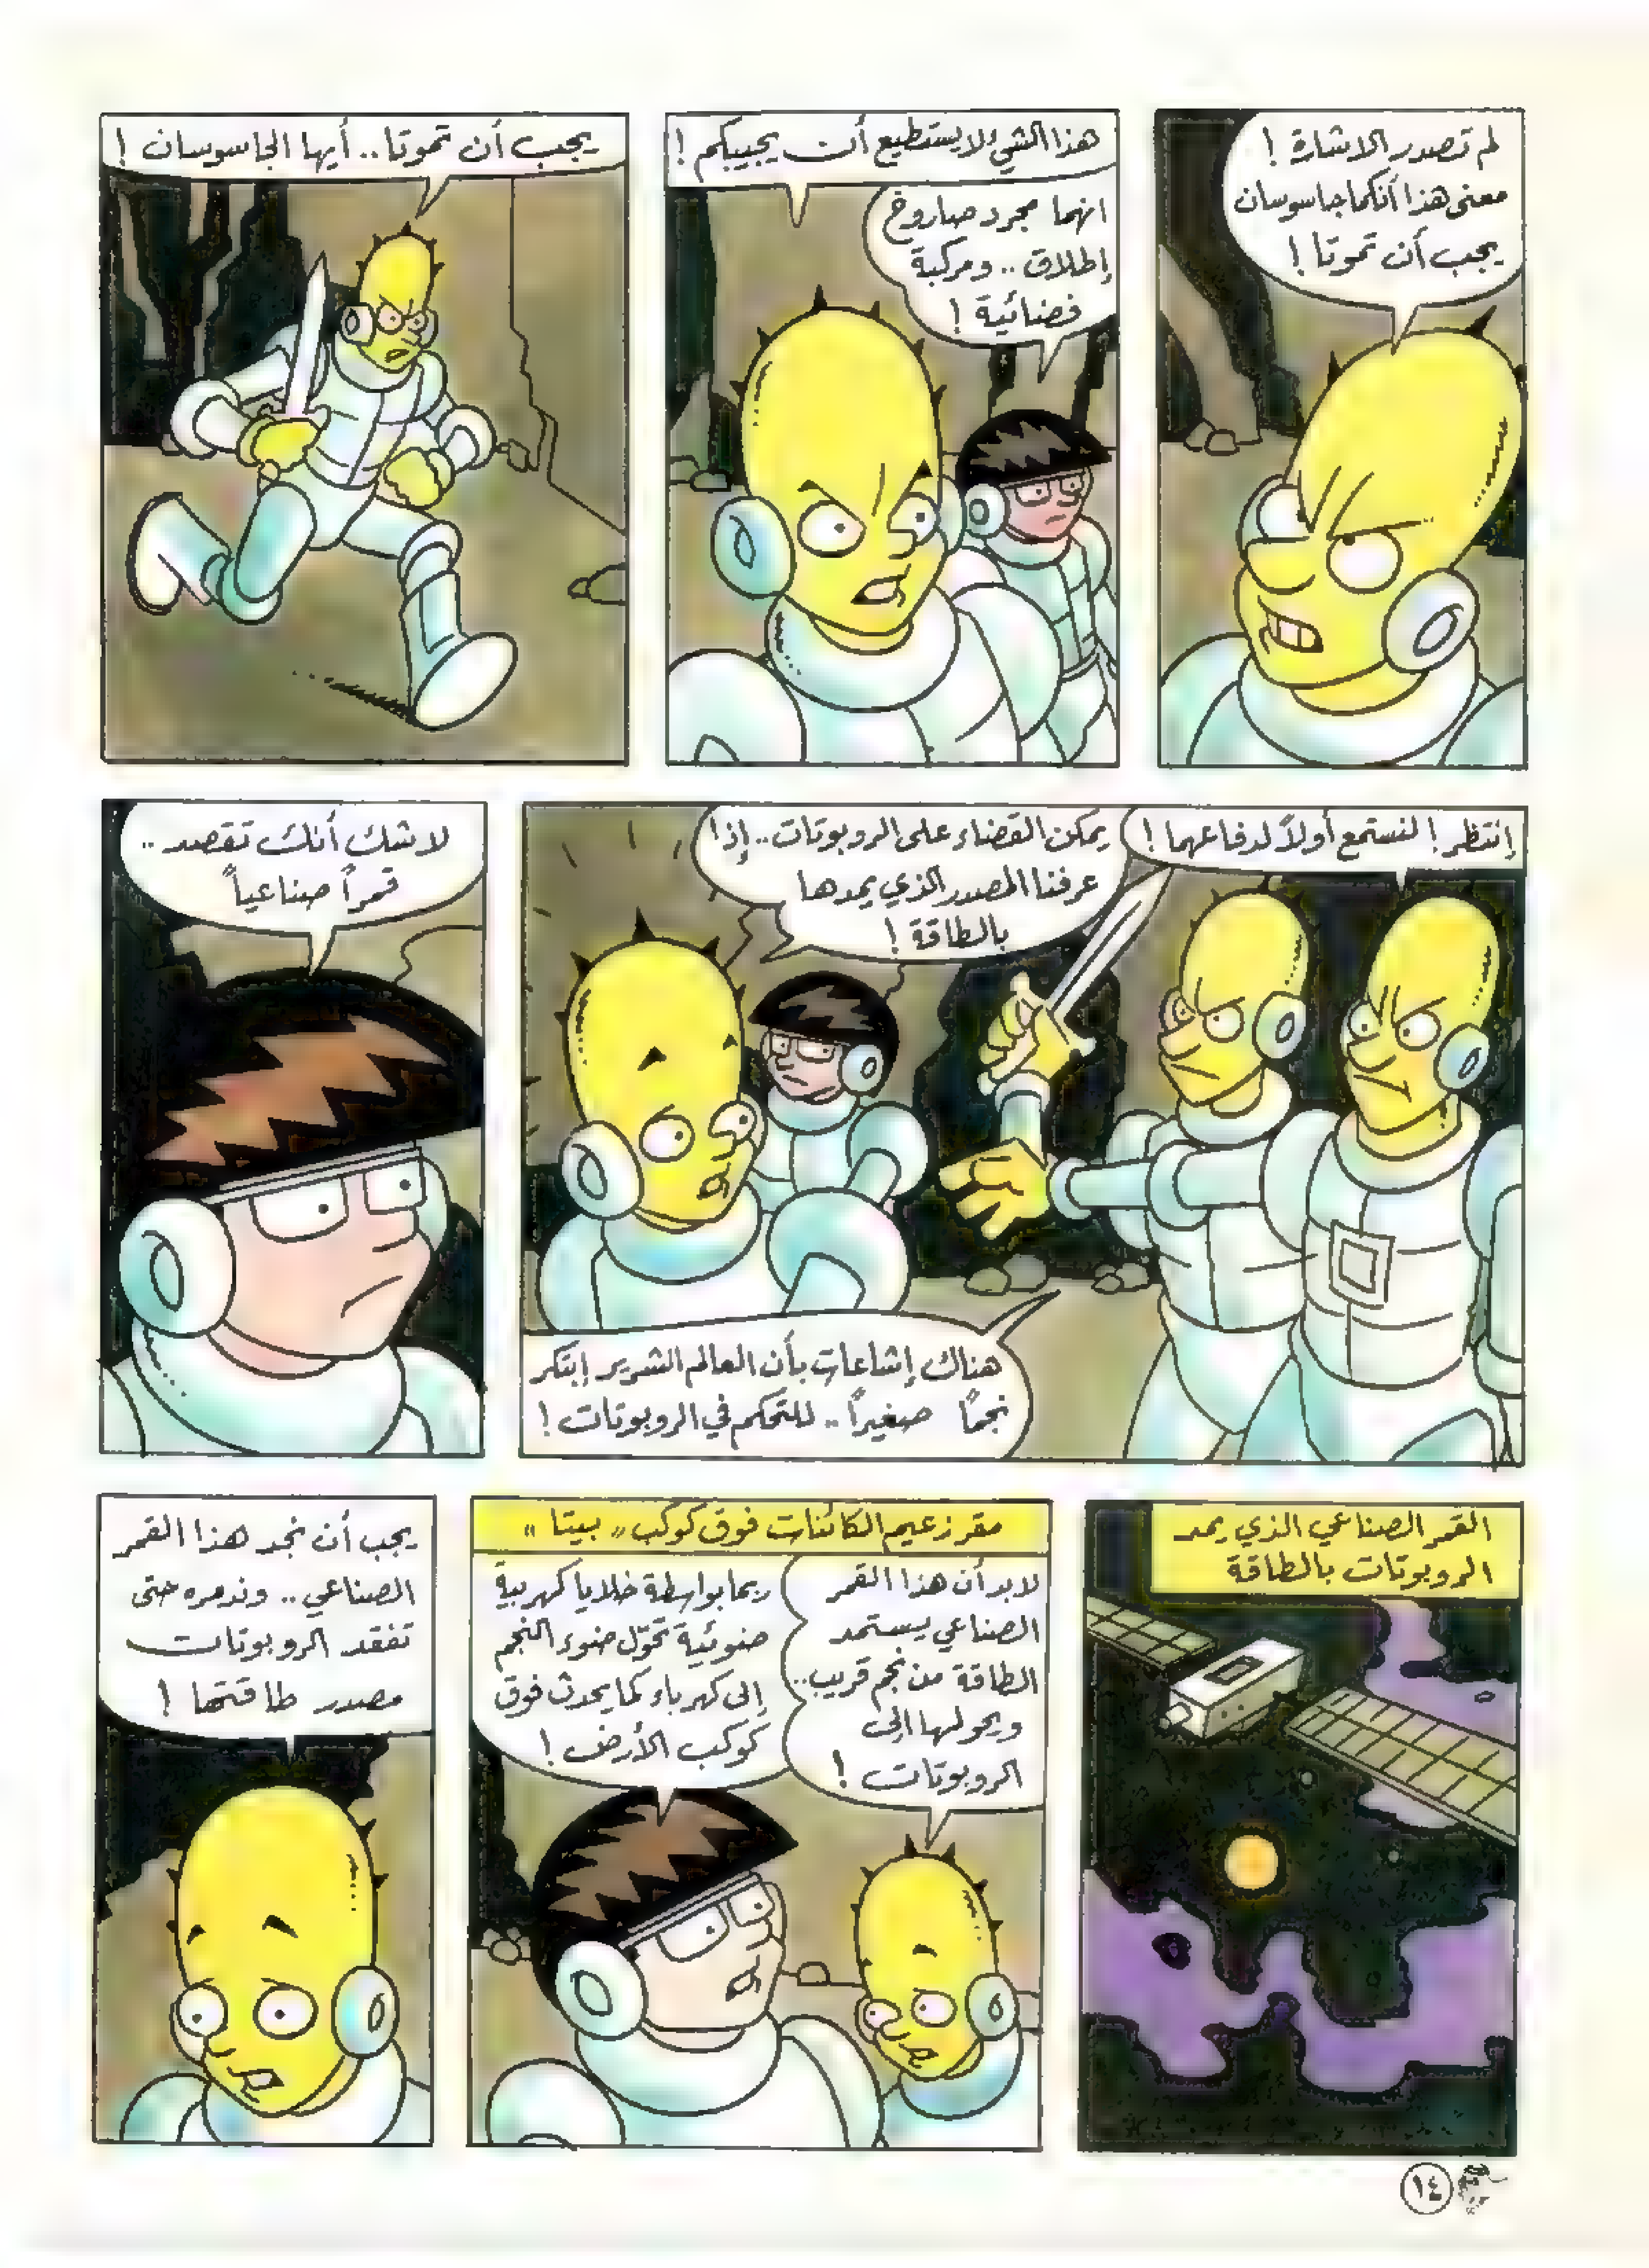 لم تصدر الاشارة !
معنى هذا أنكما جاسوسان
يجب أن تموتا !
هذا الشيء لا يستطيع أن يجيبكم !
انهما مجرد صاروخ
إطلاق .. ومركبة
فضائية !
يجب أن تموتا .. أيها الجاسوسان !
إنتظر ! لنستمع أولاً لدفاعهما !
يمكن القضاء على الروبوتات .. إذا
عرفنا المصدر الذي يمدها
بالطاقة !
هناك إشاعات بأن العالم الشرير إبتكر
نجماً صغيراً .. للتحكم في الروبوتات !
لا شك أنك تقصد ..
قمراً صناعياً
القمر الصناعي الذي يمد
الروبوتات بالطاقة
مقر زعيم الكائنات فوق كوكب " بيتا "
لابد أن هذا القمر
الصناعي يستمد
الطاقة من نجم قريب ..
ويحولها إلى
الروبوتات !
ربما بواسطة خلايا كهربية
ضوئية تحوّل ضوء النجم
إلى كهرباء كما يحدث فوق
كوكب الأرض !
يجب أن نجد هذا القمر
الصناعي .. وندمره حتى
تفقد الروبوتات
مصدر طاقتها !
١٤